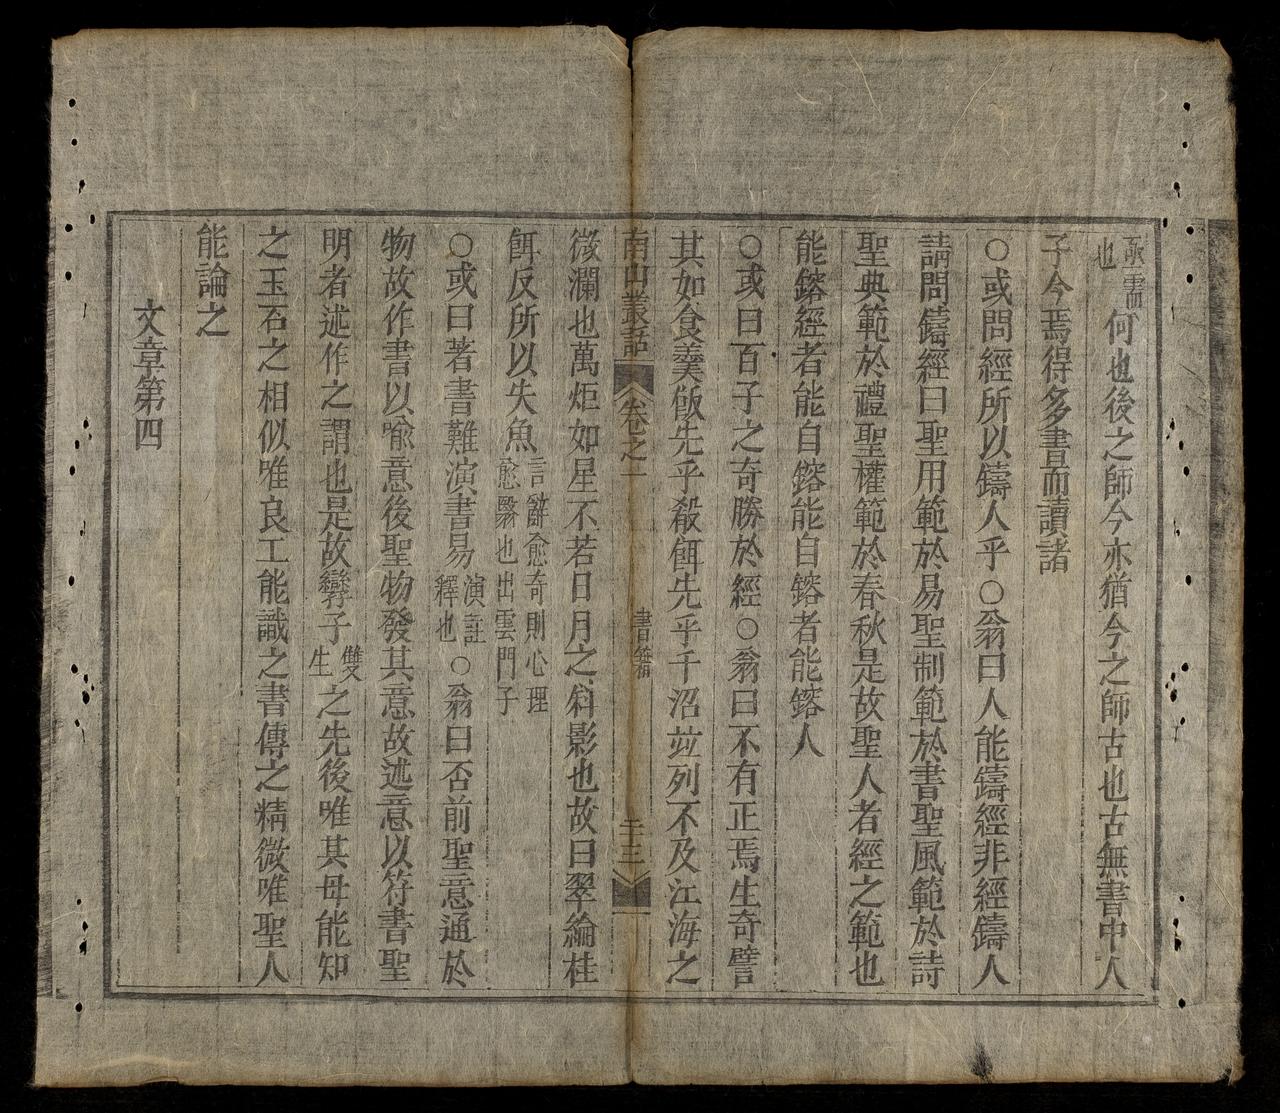 亟需
也
何也後之師今亦猶今之師古也古無書中人
子今焉得多晝而讀諸
○或問經所以鑄人乎○翁曰人能鑄經非經鑄人
請問鑄經曰聖用範於易聖制範於書聖風範於詩
聖典範於禮聖權範於春秋是故聖人者經之範也
能鎔經者能自鎔能自鎔者能鎔人
○或曰百子之奇勝於經○翁曰不有正焉生奇譬
其如食羹飯先乎殽餌先乎千沼竝列不及江海之
南山叢語 卷之一 書籍 二十三
微瀾也萬炬如星不若日月之斜影也故曰翠綸桂
餌反所以失魚
言辭愈奇則心理
愈翳也出雲門子
○或曰著書難演書易
演註
釋也
○翁曰否前聖意通於
物故作書以喩意後聖物發其意故述意以符書聖
明者述作之謂也是故孿子
雙
生
之先後唯其母能知
之玉石之相似唯良工能識之書傳之精微唯聖人
能論之
文章第四